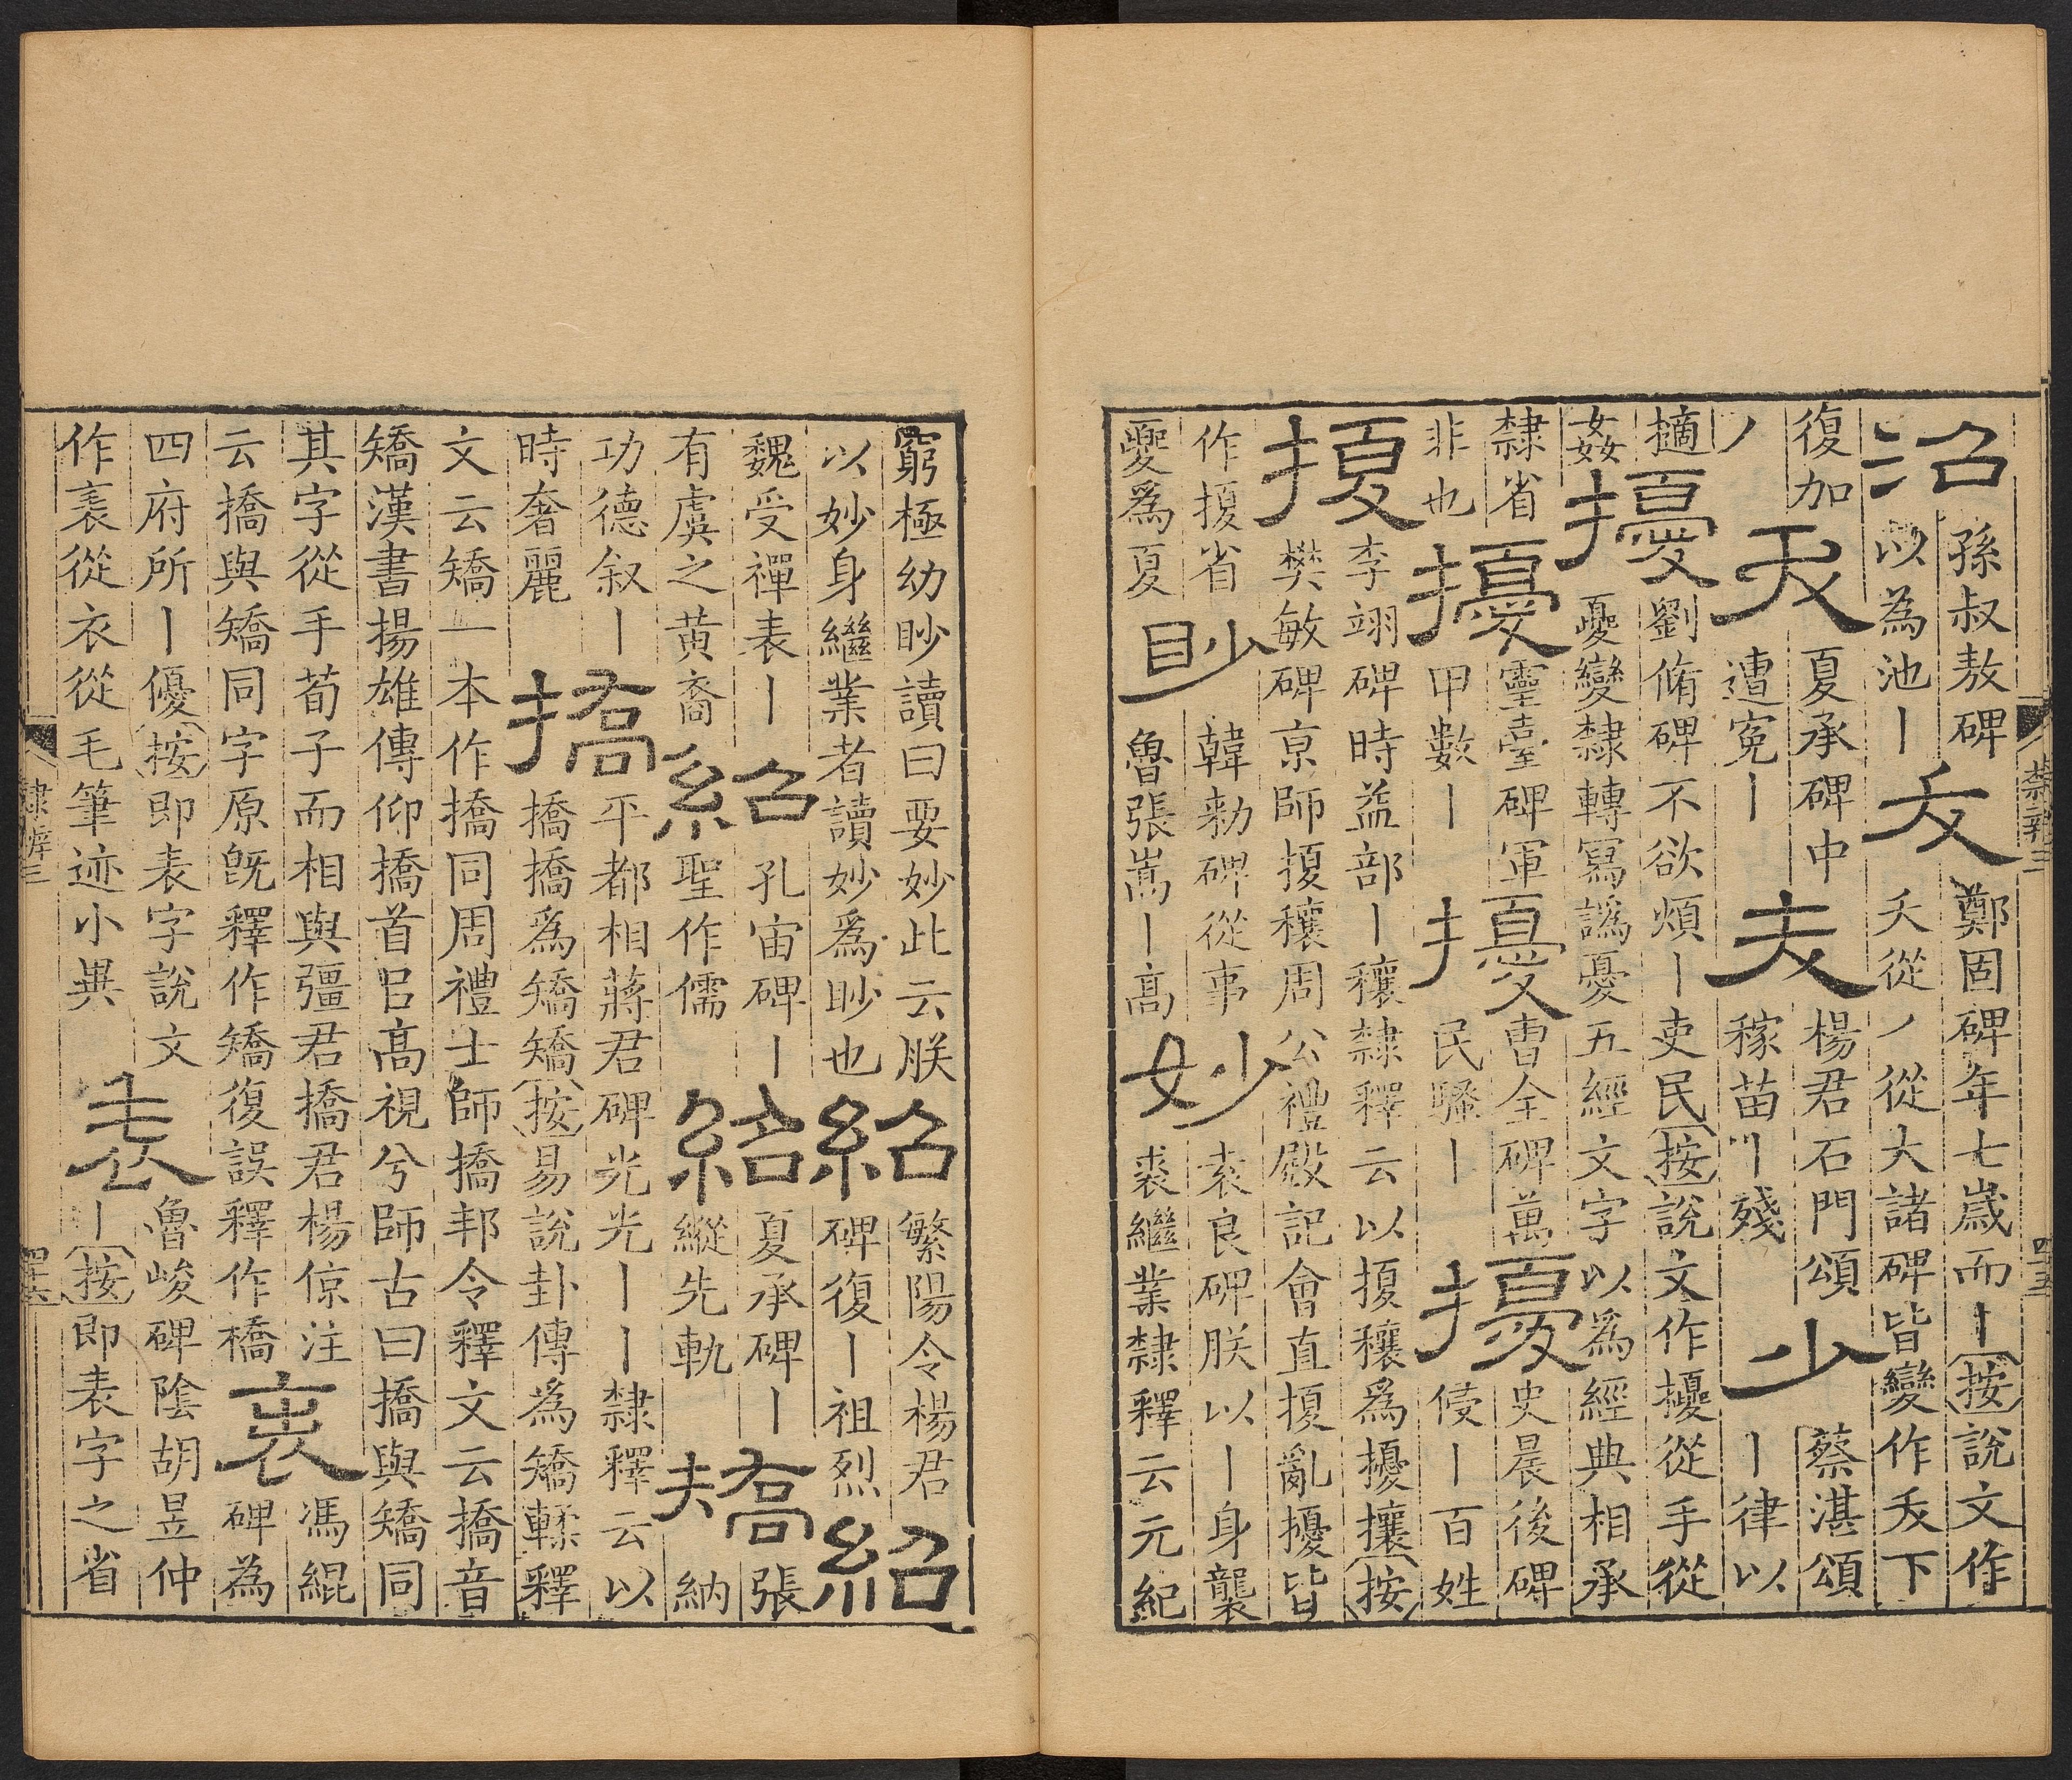 沼
孫叔敖碑
以為池丨
夭
鄭固碑年七歲而丨按說文作
夭從丿從大諸碑皆變作夭下
復加
丿
夭
夏承碑中
遭寃丨
夭
楊君石門頌
稼苗〢殘
少
蔡湛頌
丨律以
擿
姦
擾
劉脩碑不欲煩丨吏民按說文作擾從手從
夒變隸轉寫譌憂五經文字以為經典相承
隸省
非也
擾
靈臺碑軍
甲數丨
擾
曹全碑萬
民騷丨
擾
史晨後碑
侵丨百姓
擾
李翊碑時益部丨穰隸釋云以擾穰爲擾攘按
樊敏碑京師擾穰周公禮殿記會直擾亂擾皆
作擾省
夒爲夏
眇
韓勑碑從事
魯張嵩丨高
妙
袁良碑朕以丨身襲
裘繼業隸釋云元紀
隸辨三
四十五
窮極幼眇讀曰要妙此云朕
以妙身繼業者讀妙爲眇也
紹
繁陽令楊君
碑復丨祖烈
紹
魏受禪表丨
有虞之黄裔
紹
孔宙碑丨
聖作儒
紹
夏承碑丨
縱先軌
矯
張納
功德叙丨
時奢麗
撟
平都相蔣君碑光光丨丨隸釋云以
撟撟爲矯矯按易說卦傳為矯輮釋
文云矯一本作撟同周禮士師撟邦令釋文云撟音
矯漢書揚雄傳仰撟首㠯高視兮師古曰撟與矯同
其字從手荀子而相與彊君撟君楊倞注
云撟與矯同字原旣釋作矯復誤釋作橋
表
馮緄
碑為
四府所丨優按即表字說文
作𧘝從衣從毛筆迹小異
表
魯峻碑陰胡昱仲
丨按即表字之省
隸辨三
四十六